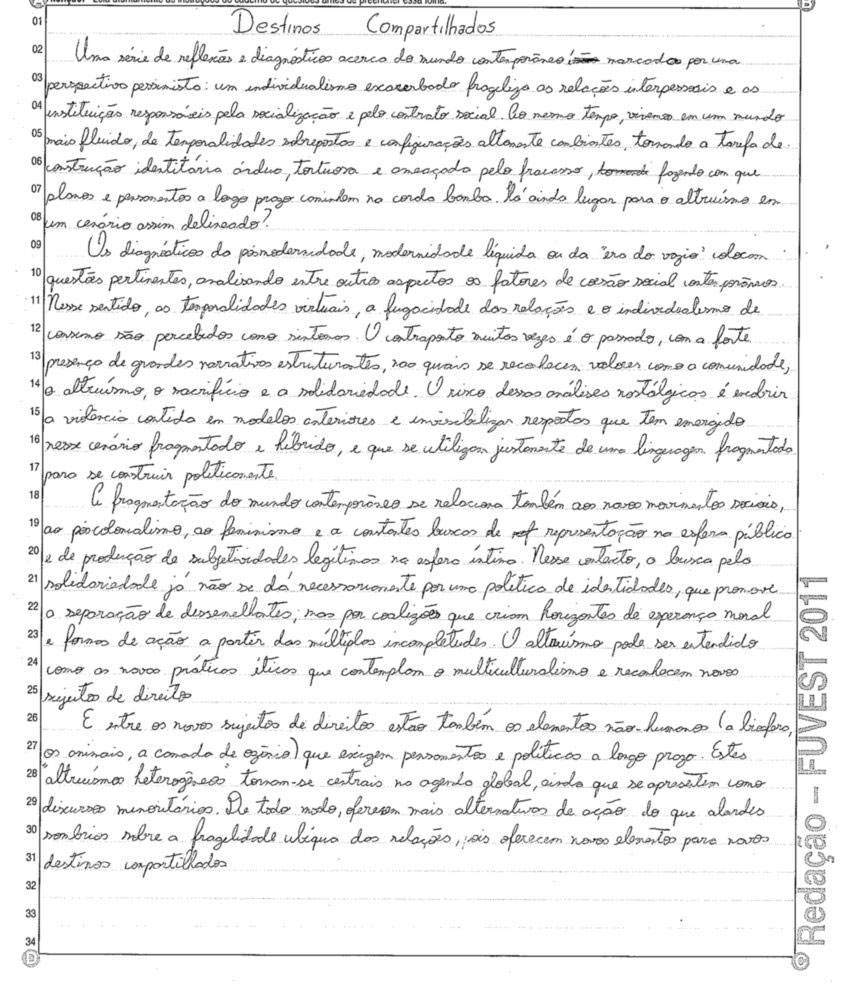 01 Destinos Compartilhados
02 Uma série de reflexões e diagnósticos acerca do mundo contemporâneo marcados por uma
03 perspectiva pessimista: um individualismo exacerbado fragiliza as relações interpessoais e as
04 instituições responsáveis pela socialização e pelo contrato social. Ao mesmo tempo, vivemos em um mundo
05 mais fluido, de temporalidades sobrepostas e configurações altamente cambiantes, tornando a tarefa de
06 construção identitária árdua, tortuosa e ameaçada pelo fracasso, fazendo com que
07 planos e pensamentos a longo prazo caminhem na corda bamba. Há ainda lugar para o altruísmo em
08 um cenário assim delineado?
09 Os diagnósticos da pósmodernidade, modernidade líquida ou da "era do vazio" colocam
10 questões pertinentes, analisando entre outros aspectos os fatores de coesão social contemporâneos.
11 Nesse sentido, as temporalidades virtuais, a fugacidade das relações e o individualismo de
12 consumo são percebidos como sintomas. O contraponto muitas vezes é o passado, com a forte
13 presença de grandes narrativas estruturantes, nas quais se reconhecem valores como a comunidade,
14 o altruísmo, o sacrifício e a solidariedade. O risco dessas análises nostálgicas é encobrir
15 a violência contida em modelos anteriores e invisibilizar respostas que tem emergido
16 nesse cenário fragmentado e híbrido, e que se utilizam justamente de uma linguagem fragmentada
17 para se construir politicamente.
18 A fragmentação do mundo contemporâneo se relaciona também aos novos movimentos sociais,
19 ao póscolonialismo, ao feminismo e a constantes buscas de representação na esfera pública
20 e de produção de subjetividades legítimas na esfera íntima. Nesse contexto, a busca pela
21 solidariedade já não se dá necessariamente por uma política de identidades, que promove
22 a separação de dessemelhantes, mas por coalizões que criam horizontes de esperança moral
23 e formas de ação a partir das múltiplas incompletudes. O altruísmo pode ser entendido
24 como as novas práticas éticas que contemplam o multiculturalismo e reconhecem novos
25 sujeitos de direito
26 E entre os novos sujeitos de direitos estão também os elementos não-humanos (a biosfera,
27 os animais, a camada de ozônio) que exigem pensamentos e políticas a longo prazo. Estes
28 "altruísmos heterogêneos" tornam-se centrais na agenda global, ainda que se apresentem como
29 discursos minoritários. De todo modo, oferecem mais alternativas de ação do que alardes
30 sombrios sobre a fragilidade ubíqua das relações, pois oferecem novos elementos para novos
31 destinos compartilhados
32
33
34
Redação – FUVEST 2011